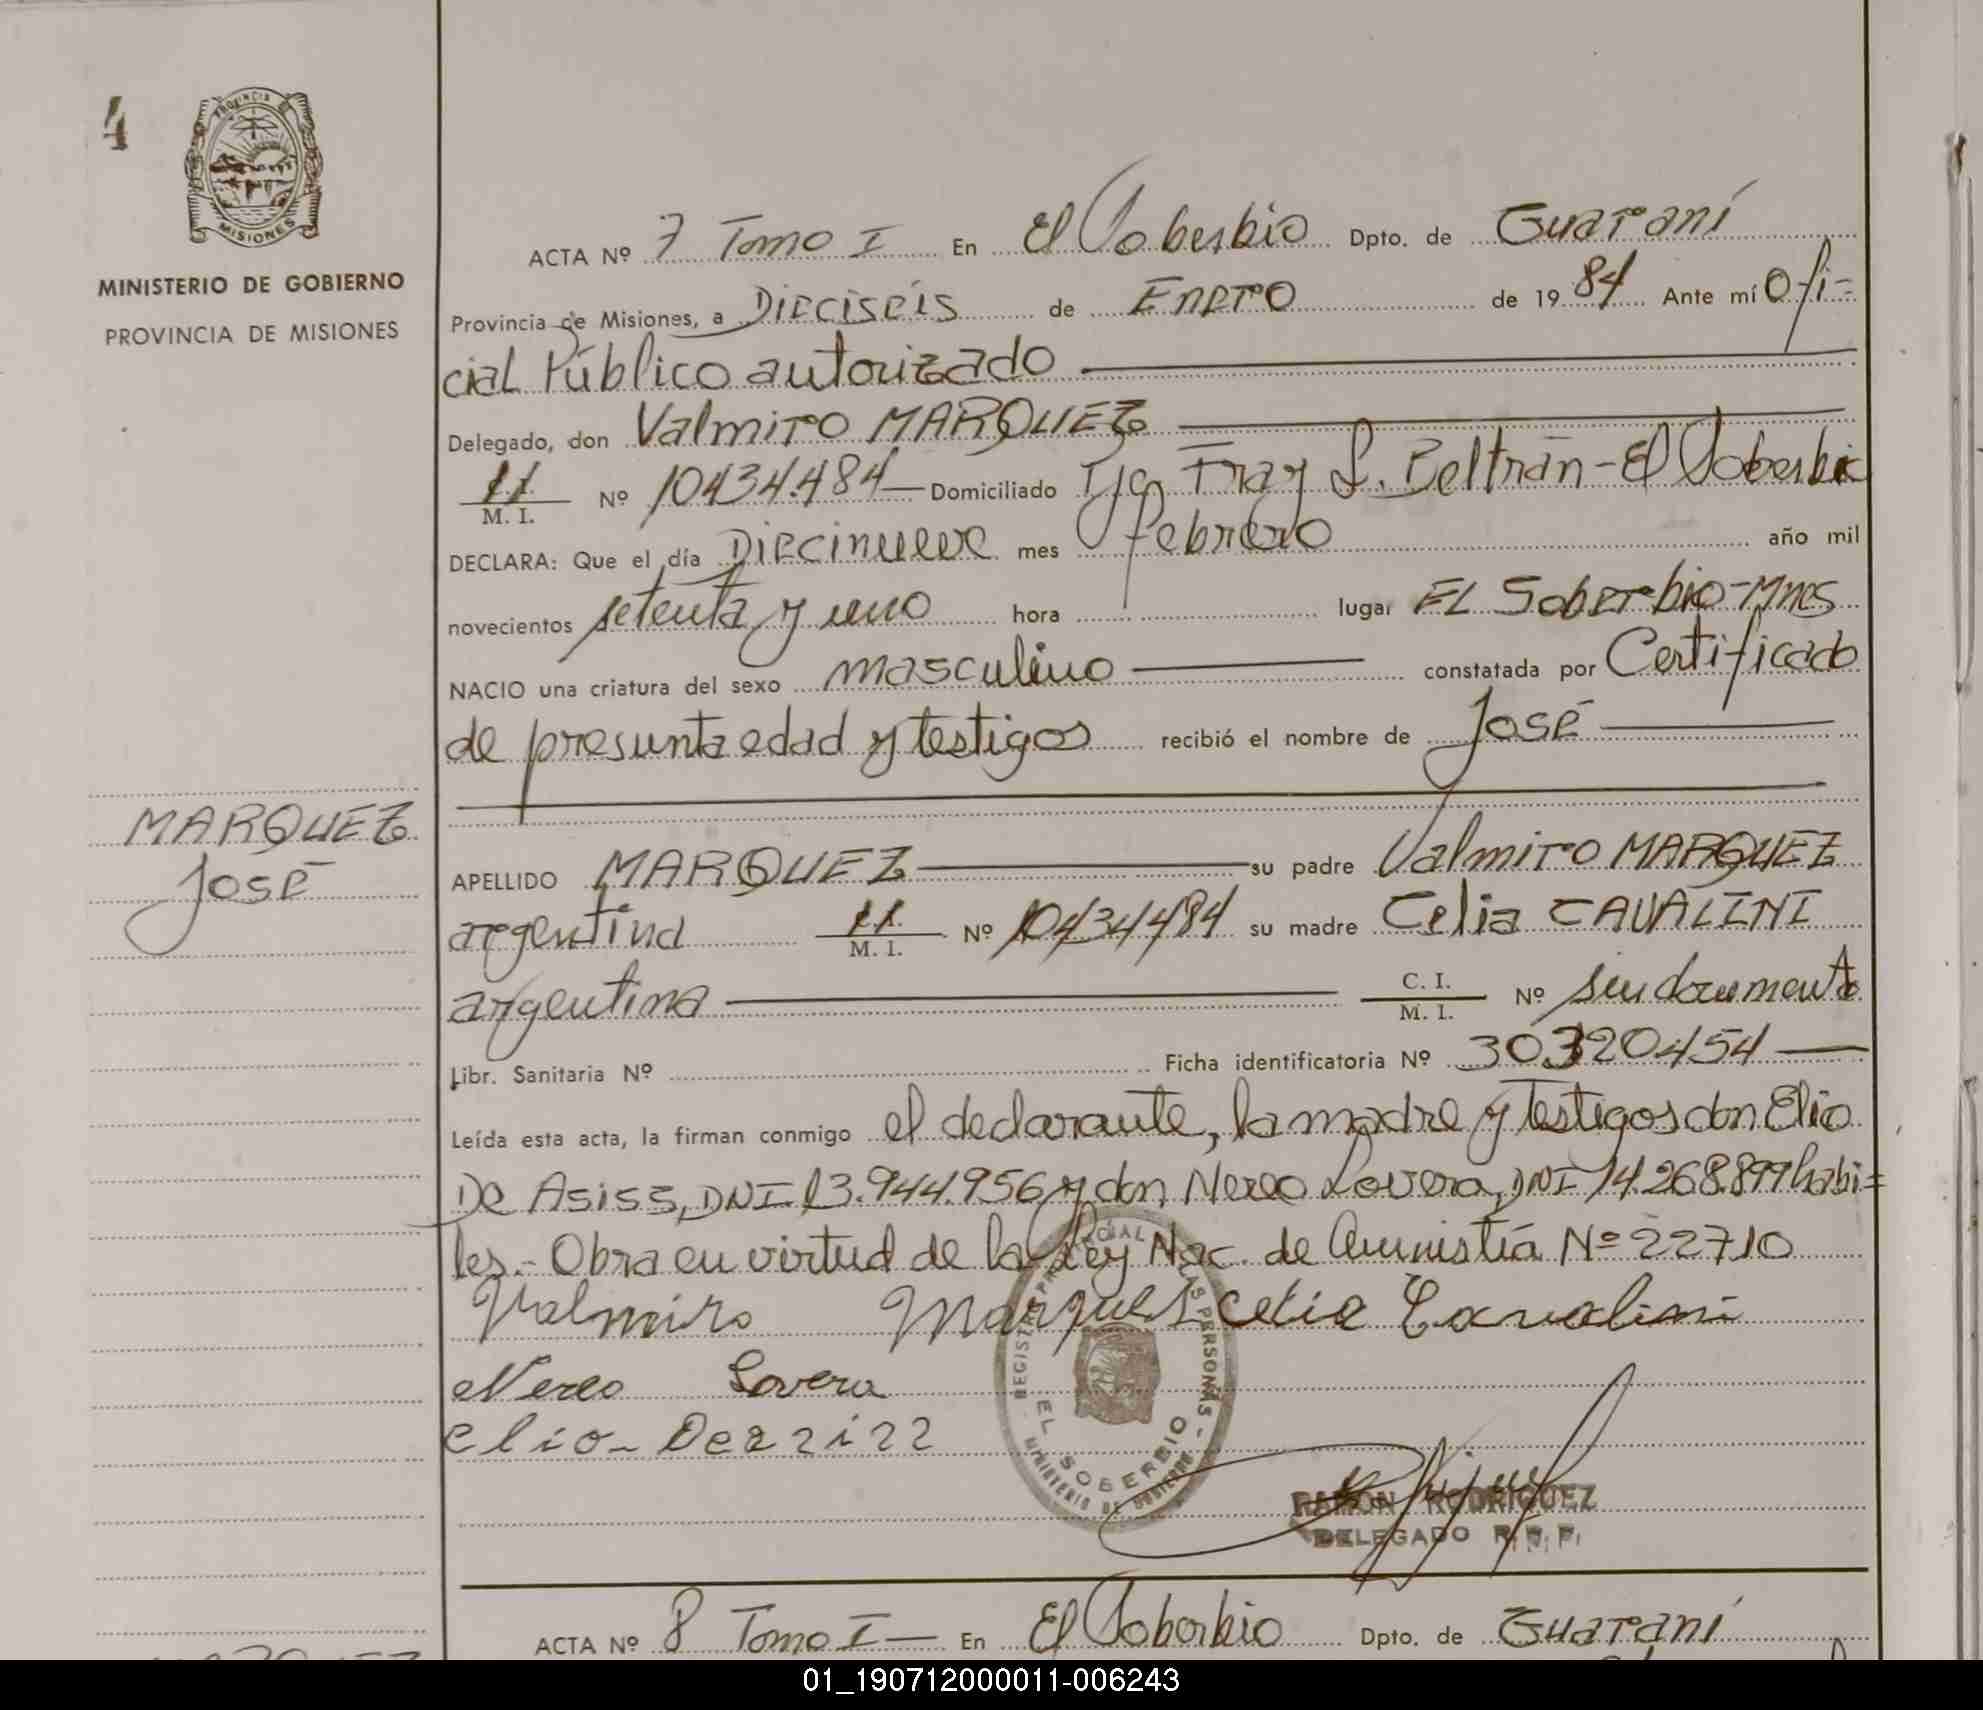 4
PROVINCIA
MISIONES
MINISTERIO DE GOBIERNO
PROVINCIA DE MISIONES
ACTA Nº 7 Tomo I En El Soberbio Dpto. de Guaraní
Provincia de Misiones, a Dieciséis de Enero de 1984 Ante mí Ofi=
cial Público autorizado
Delegado, don Valmiro MARQUEZ
M. I. Nº 10434.484 Domiciliado Fray L. Beltrán - El Soberbio
DECLARA: Que el día Diecinueve mes febrero año mil
novecientos setenta y uno hora lugar EL Soberbio - Mnes
NACIO una criatura del sexo masculino constatada por Certificado
de presunta edad y testigos recibió el nombre de José
MARQUEZ
José
APELLIDO MARQUEZ su padre Valmiro MARQUEZ
argentina M. I. Nº 10434484 su madre Celia CAVALINI
argentina C. I. M. I. Nº sin documento
Libr. Sanitaria Nº Ficha identificatoria Nº 30320454
Leída esta acta, la firman conmigo el declarante, la madre y testigos don Elio
De Asiss, DNI 13.944.956 y don Nereo Lovera, DNI 14.268.899 habi=
les.- Obra en virtud de la Ley Nac. de Amnistía Nº 22710
Valmiro Marquez Celia Cavalini
Nereo Lovera
Elio
REGISTRO PROVINCIAL LAS PERSONAS
EL SOBERBIO
MINISTERIO DE GOBIERNO
RAMON RODRIGUEZ
DELEGADO R. P. P.
ACTA Nº 8 Tomo I En El Soberbio Dpto. de Guaraní
01_190712000011-006243